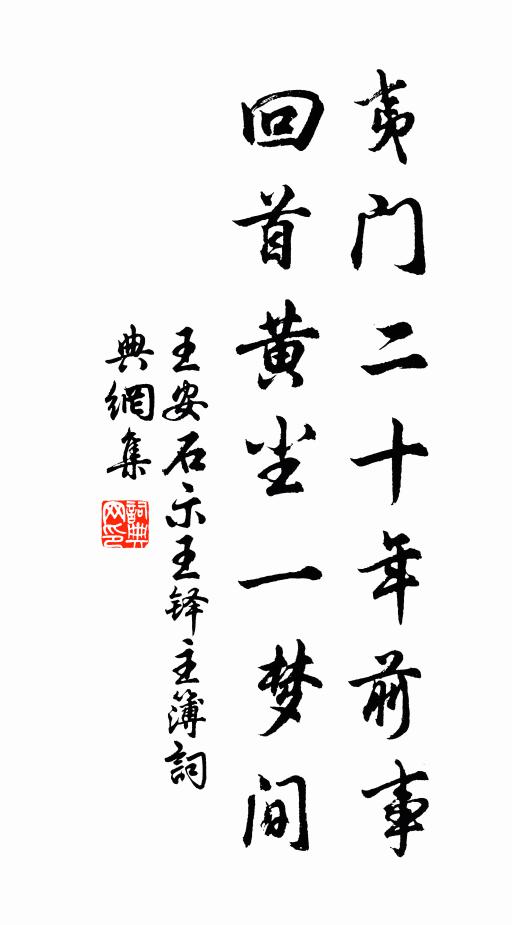 夷门二十年前事
回首黄尘一梦间
王安石示王铎主簿詞
典網集
詞典
网印